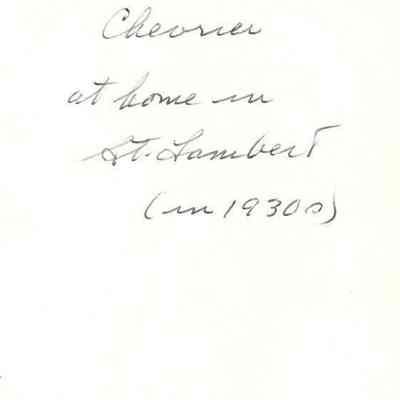 Chevrier
at home in
St. Lambert
(in 1930s)